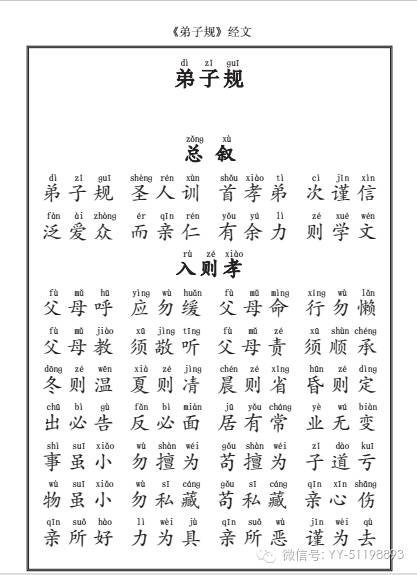 《弟子规》经文
dì zǐ guī
弟子规
zǒng xù
总叙
dì zǐ guī shèng rén xùn shǒu xiào tì cì jǐn xìn
弟子规 圣人训 首孝弟 次谨信
fàn ài zhòng ér qīn rén yǒu yú lì zé xué wén
泛爱众 而亲仁 有余力 则学文
rù zé xiào
入则孝
fù mǔ hū yìng wù huǎn fù mǔ mìng xíng wù lǎn
父母呼 应勿缓 父母命 行勿懒
fù mǔ jiào xū jìng tīng fù mǔ zé xū shùn chéng
父母教 须敬听 父母责 须顺承
dōng zé wēn xià zé jìng chén zé xǐng hūn zé dìng
冬则温 夏则凊 晨则省 昏则定
chū bì gù fǎn bì miàn jū yǒu cháng yè wú biàn
出必告 反必面 居有常 业无变
shì suī xiǎo wù shàn wéi gǒu shàn wéi zǐ dào kuī
事虽小 勿擅为 苟擅为 子道亏
wù suī xiǎo wù sī cáng gǒu sī cáng qīn xīn shāng
物虽小 勿私藏 苟私藏 亲心伤
qīn suǒ hào lì wèi jù qīn suǒ wù jǐn wèi qù
亲所好 力为具 亲所恶 谨为去
微信号: YY-51198893